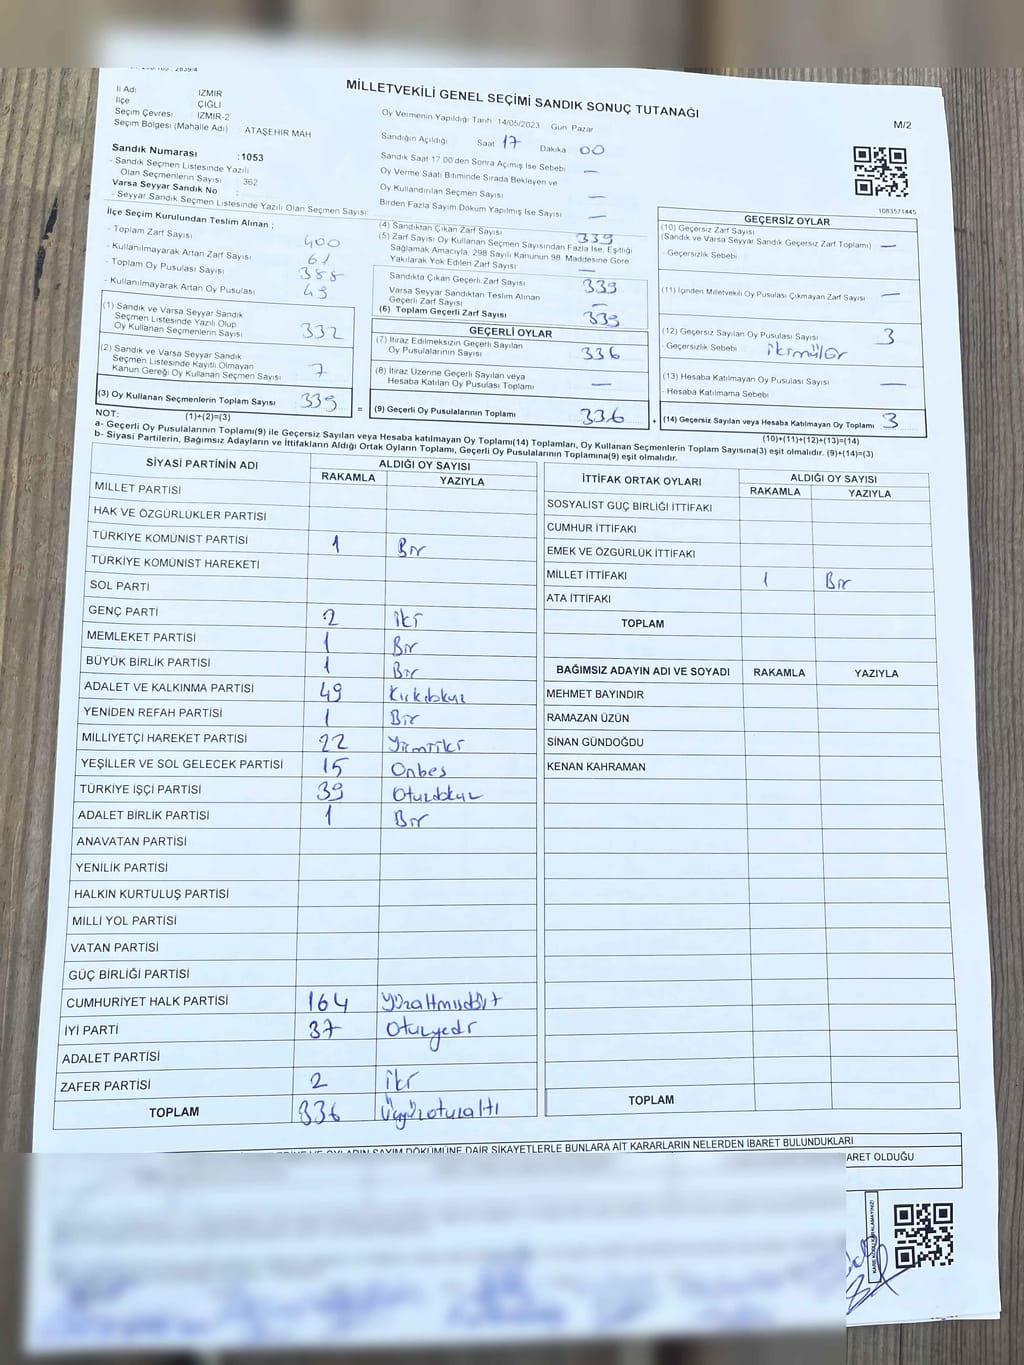 MİLLETVEKİLİ GENEL SEÇİMİ SANDIK SONUÇ TUTANAĞI
M/2
İl Adı İZMİR
İlçe ÇİĞLİ
Seçim Çevresi İZMİR-2
Seçim Bölgesi (Mahalle Adı) ATAŞEHİR MAH
Sandık Numarası :1053
- Sandık Seçmen Listesinde Yazılı
Olan Seçmenlerin Sayısı 362
Varsa Seyyar Sandık No
- Seyyar Sandık Seçmen Listesinde Yazılı Olan Seçmen Sayısı:
Oy Vermenin Yapıldığı Tarih 14/05/2023 Gün Pazar
Sandığın Açıldığı Saat 17 Dakika 00
Sandık Saat 17.00'den Sonra Açılmış İse Sebebi —
Oy Verme Saati Bitiminde Sırada Bekleyen ve
Oy Kullandırılan Seçmen Sayısı —
Birden Fazla Sayım Döküm Yapılmış İse Sayısı —
1083571445
İlçe Seçim Kurulundan Teslim Alınan ;
- Toplam Zarf Sayısı 400
- Kullanılmayarak Artan Zarf Sayısı 61
- Toplam Oy Pusulası Sayısı 388
- Kullanılmayarak Artan Oy Pusulası 49
(1) Sandık ve Varsa Seyyar Sandık
Seçmen Listesinde Yazılı Olup
Oy Kullanan Seçmenlerin Sayısı 332
(2) Sandık ve Varsa Seyyar Sandık
Seçmen Listesinde Kayıtlı Olmayan
Kanun Gereği Oy Kullanan Seçmen Sayısı 7
(3) Oy Kullanan Seçmenlerin Toplam Sayısı 339
(1)+(2)=(3)
(4) Sandıktan Çıkan Zarf Sayısı 339
(5) Zarf Sayısı Oy Kullanan Seçmen Sayısından Fazla İse, Eşitliği
Sağlamak Amacıyla, 298 Sayılı Kanunun 98. Maddesine Göre
Yakılarak Yok Edilen Zarf Sayısı —
Sandıkta Çıkan Geçerli Zarf Sayısı 339
Varsa Seyyar Sandıktan Teslim Alınan
Geçerli Zarf Sayısı —
(6) Toplam Geçerli Zarf Sayısı 339
GEÇERLİ OYLAR
(7) İtiraz Edilmeksizin Geçerli Sayılan
Oy Pusulalarının Sayısı 336
(8) İtiraz Üzerine Geçerli Sayılan veya
Hesaba Katılan Oy Pusulası Toplamı —
= (9) Geçerli Oy Pusulalarının Toplamı 336 +
GEÇERSİZ OYLAR
(10) Geçersiz Zarf Sayısı
(Sandık ve Varsa Seyyar Sandık Geçersiz Zarf Toplamı) —
- Geçersizlik Sebebi
(11) İçinden Milletvekili Oy Pusulası Çıkmayan Zarf Sayısı —
(12) Geçersiz Sayılan Oy Pusulası Sayısı 3
- Geçersizlik Sebebi
(13) Hesaba Katılmayan Oy Pusulası Sayısı —
- Hesaba Katılmama Sebebi
(14) Geçersiz Sayılan veya Hesaba Katılmayan Oy Toplamı 3
(10)+(11)+(12)+(13)=(14)
NOT:
a- Geçerli Oy Pusulalarının Toplamı(9) ile Geçersiz Sayılan veya Hesaba katılmayan Oy Toplamı(14) Toplamları, Oy Kullanan Seçmenlerin Toplam Sayısına(3) eşit olmalıdır. (9)+(14)=(3)
b- Siyasi Partilerin, Bağımsız Adayların ve İttifakların Aldığı Ortak Oyların Toplamı, Geçerli Oy Pusulalarının Toplamına(9) eşit olmalıdır.
SİYASİ PARTİNİN ADI ALDIĞI OY SAYISI
RAKAMLA YAZIYLA
MİLLET PARTİSİ
HAK VE ÖZGÜRLÜKLER PARTİSİ
TÜRKİYE KOMÜNİST PARTİSİ 1 Bir
TÜRKİYE KOMÜNİST HAREKETİ
SOL PARTİ
GENÇ PARTİ 2 iki
MEMLEKET PARTİSİ 1 Bir
BÜYÜK BİRLİK PARTİSİ 1 Bir
ADALET VE KALKINMA PARTİSİ 49 Kırkdokuz
YENİDEN REFAH PARTİSİ 1 Bir
MİLLİYETÇİ HAREKET PARTİSİ 22 Yirmiiki
YEŞİLLER VE SOL GELECEK PARTİSİ 15 Onbeş
TÜRKİYE İŞÇİ PARTİSİ 39 Otuzdokuz
ADALET BİRLİK PARTİSİ 1 Bir
ANAVATAN PARTİSİ
YENİLİK PARTİSİ
HALKIN KURTULUŞ PARTİSİ
MİLLİ YOL PARTİSİ
VATAN PARTİSİ
GÜÇ BİRLİĞİ PARTİSİ
CUMHURİYET HALK PARTİSİ 164 Yüzaltmışdört
İYİ PARTİ 37 Otuzyedi
ADALET PARTİSİ
ZAFER PARTİSİ 2 iki
TOPLAM 336 Üçyüzotuzaltı
İTTİFAK ORTAK OYLARI ALDIĞI OY SAYISI
RAKAMLA YAZIYLA
SOSYALİST GÜÇ BİRLİĞİ İTTİFAKI
CUMHUR İTTİFAKI
EMEK VE ÖZGÜRLÜK İTTİFAKI
MİLLET İTTİFAKI 1 Bir
ATA İTTİFAKI
TOPLAM
BAĞIMSIZ ADAYIN ADI VE SOYADI RAKAMLA YAZIYLA
MEHMET BAYINDIR
RAMAZAN ÜZÜN
SİNAN GÜNDOĞDU
KENAN KAHRAMAN
TOPLAM
OYLARIN SAYIM DÖKÜMÜNE DAİR ŞİKAYETLERLE BUNLARA AİT KARARLARIN NELERDEN İBARET BULUNDUKLARI
ARET OLDUĞU